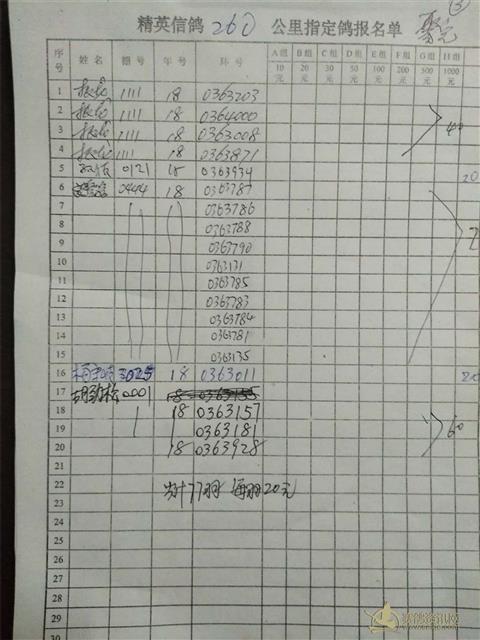 精英信鸽 260 公里指定鸽报名单
序号 姓名 棚号 年号 环号 A组 10元 B组 20元 C组 30元 D组 50元 E组 100元 F组 200元 G组 500元 H组 1000元
1 1111 18 0363203
2 1111 18 0364000
3 1111 18 0363008
4 1111 18 0363871
5 0121 18 0363934 20
6 0444 18 0363787
7 0363786
8 0363788
9 0363790
10 0363131
11 0363785
12 0363783
13 0363784
14 0363781
15 0363135
16 3025 18 0363011
17 0001
18 18 0363157
19 0363181 60
20 18 0363928
21
22 共计77羽 每羽20元
23
24
25
26
27
28
29
30